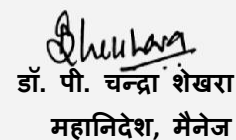 डॉ. पी. चन्द्रा शेखरा
महानिदेश, मैनेज